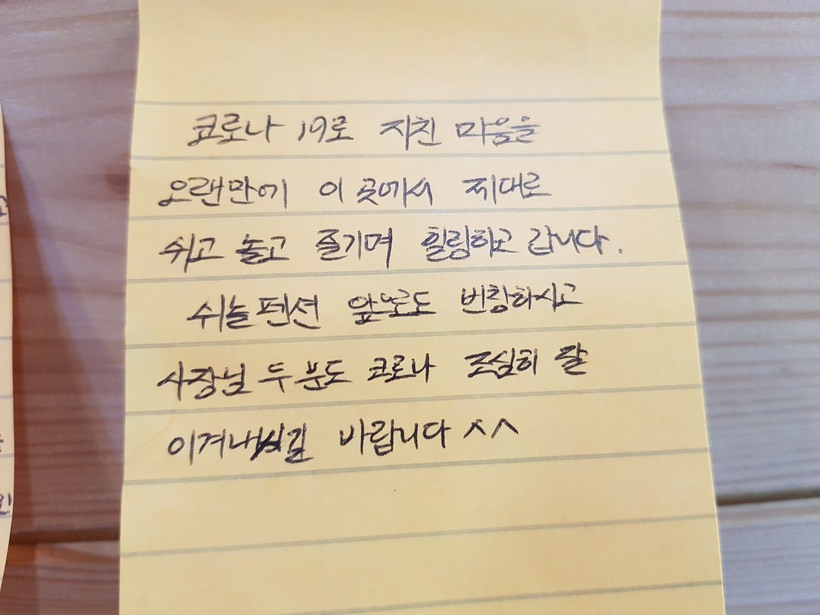 코로나 19로 지친 마음을
오랜만에 이 곳에서 제대로
쉬고 놀고 즐기며 힐링하고 갑니다.
쉬놀펜션 앞으로도 번창하시고
사장님 두 분도 코로나 조심히 잘
이겨내시길 바랍니다 ^^